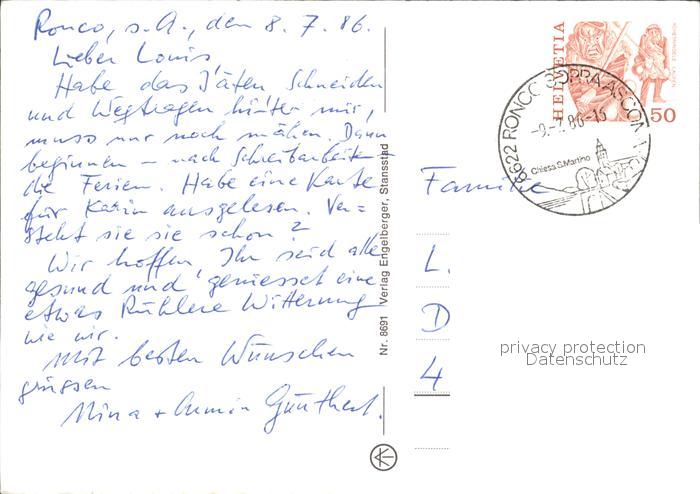 Ronco, s.A., den 8. 7. 86.
Lieber Louis,
Habe das Jäten, Schneiden
und Wegtragen hinter mir,
muss nur noch mähen. Dann
beginnen – nach Schreibarbeiten –
die Ferien. Habe eine Karte
für Karin ausgelesen. Ver=
steht sie sie schon?
Wir hoffen, Ihr seid alle
gesund und geniesset eine
etwas kühlere Witterung
wie wir.
Mit besten Wünschen
grüssen
Nina + Armin Günthert.
Nr. 8691 Verlag Engelberger, Stansstad
HELVETIA
50
6622 RONCO SOPRA ASCONA
-9.-7.86-15
Chiesa S. Martino
Familie
L.
D
4
privacy protection
Datenschutz